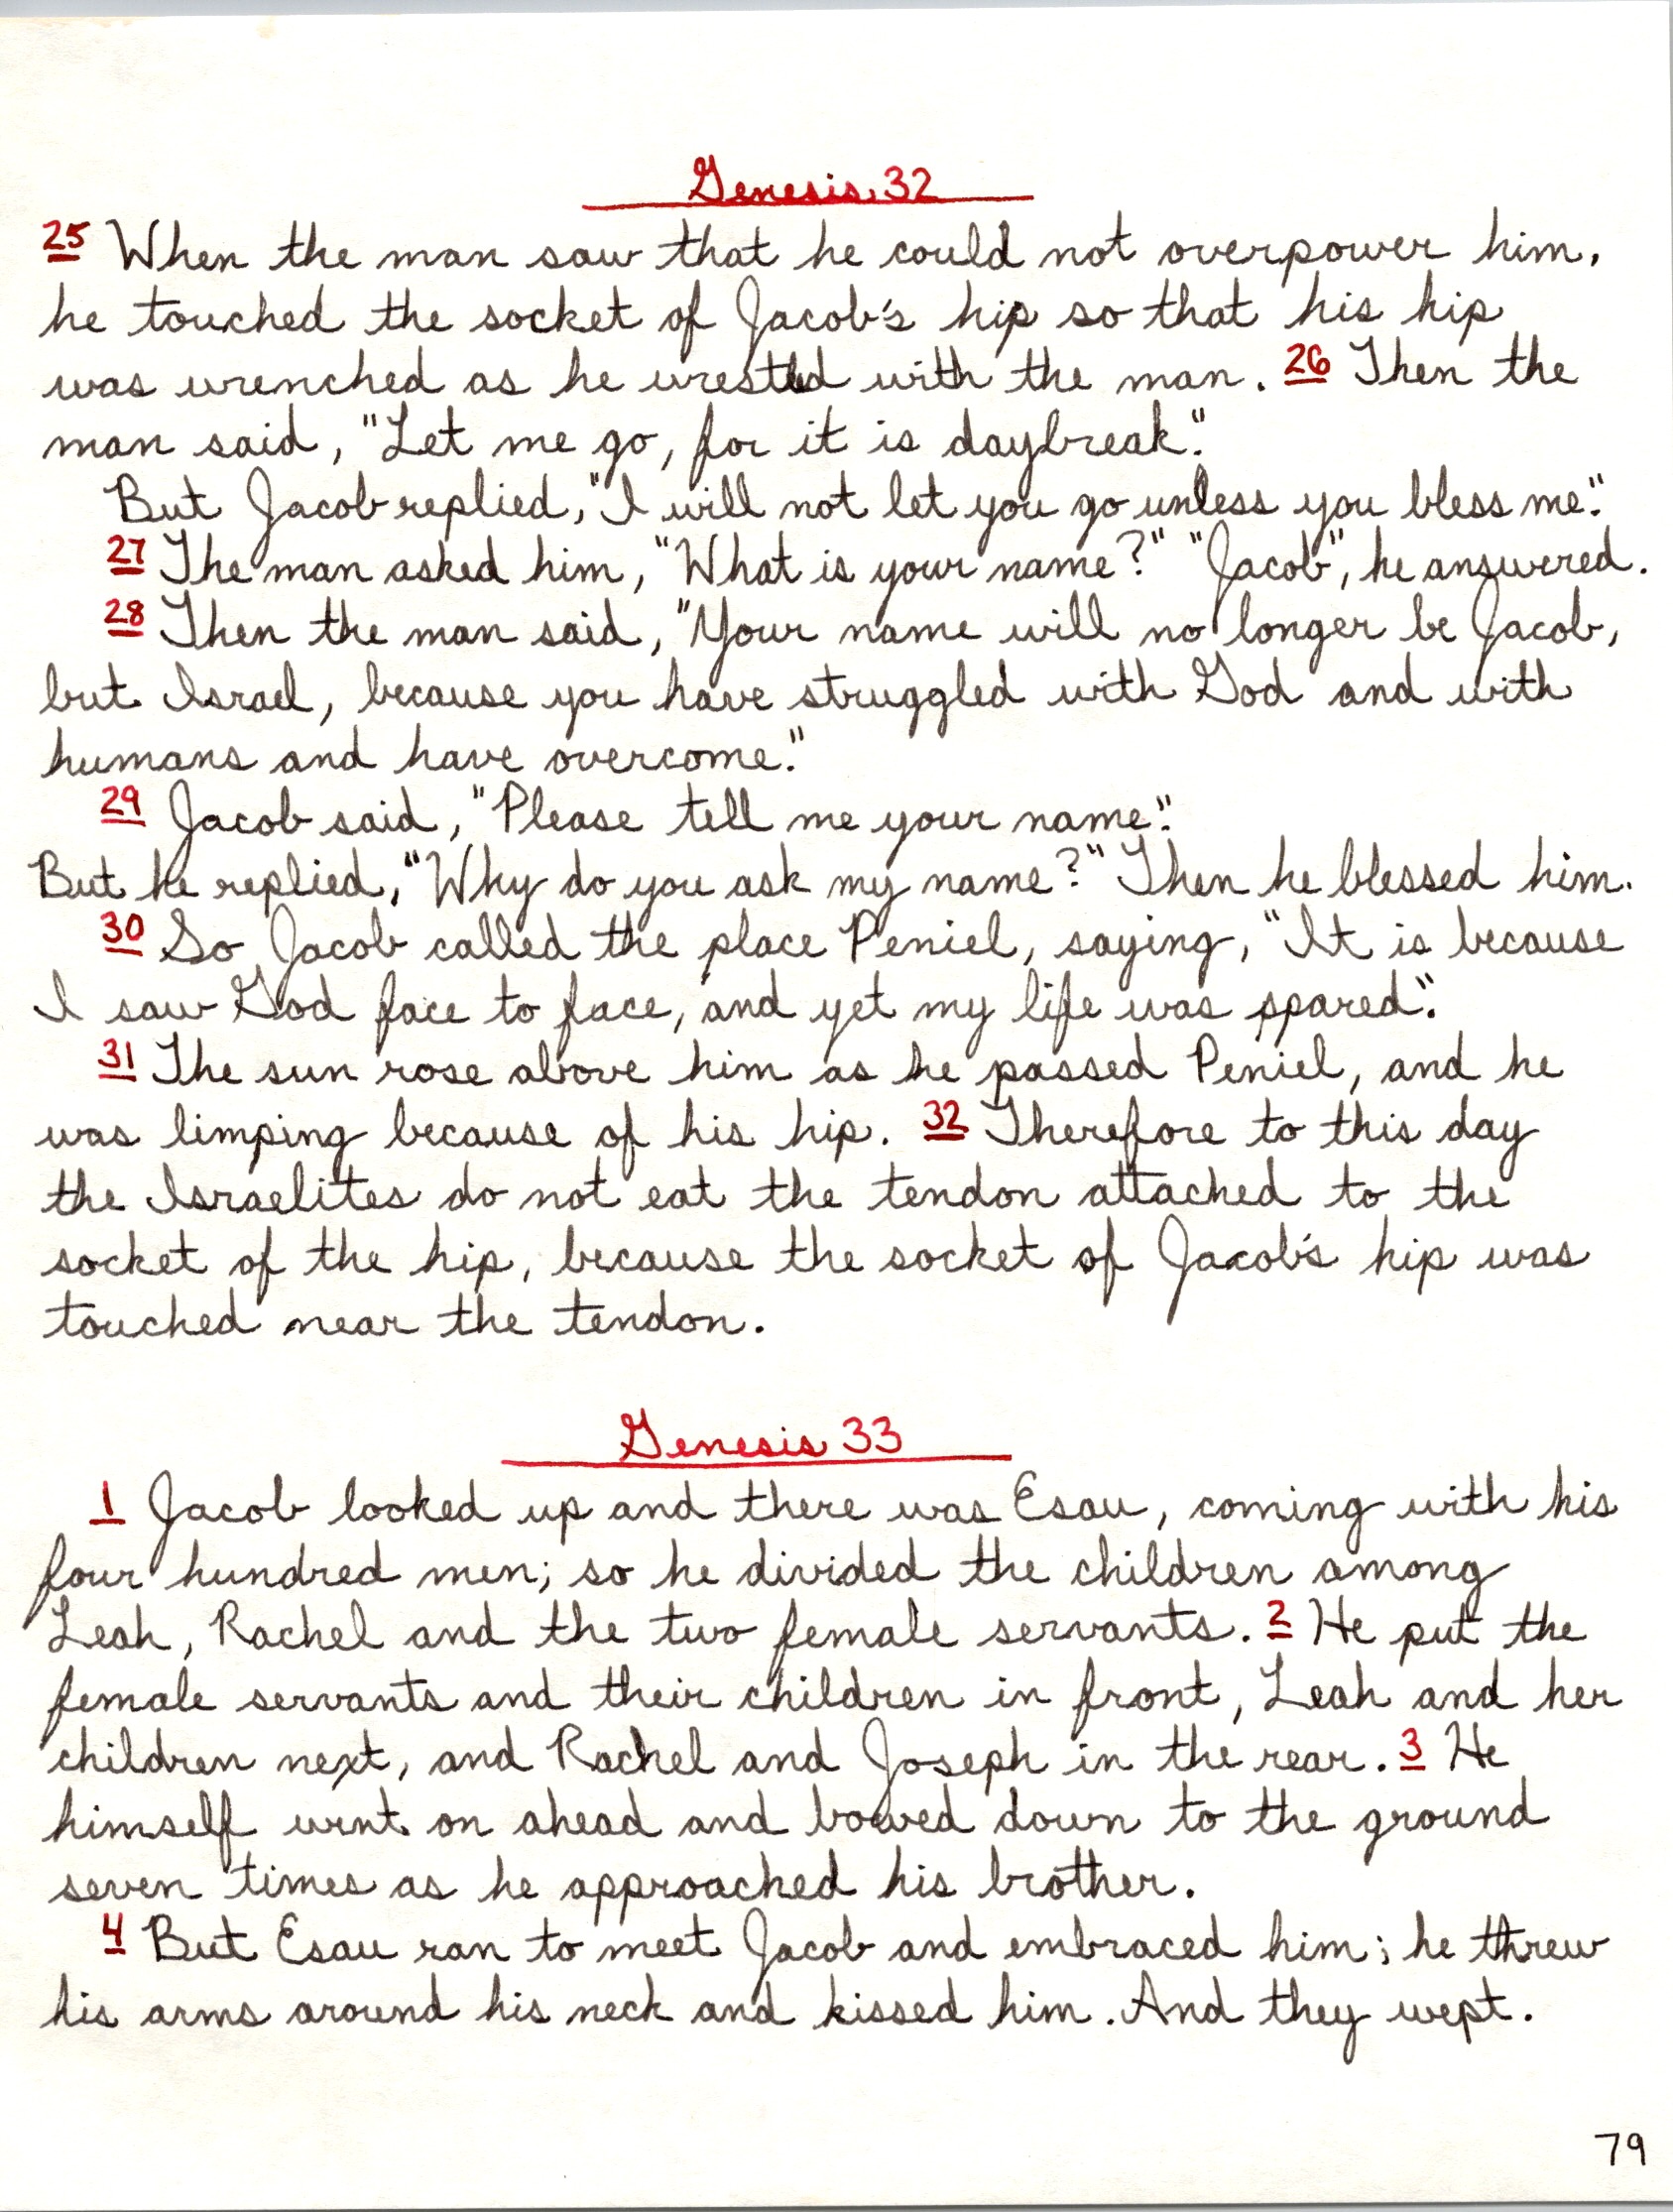 Genesis 32
25 When the man saw that he could not overpower him,
he touched the socket of Jacob's hip so that his hip
was wrenched as he wrestled with the man. 26 Then the
man said, "Let me go, for it is daybreak."
But Jacob replied, "I will not let you go unless you bless me."
27 The man asked him, "What is your name?" "Jacob", he answered.
28 Then the man said, "Your name will no longer be Jacob,
but Israel, because you have struggled with God and with
humans and have overcome."
29 Jacob said, "Please tell me your name."
But he replied, "Why do you ask my name?" Then he blessed him.
30 So Jacob called the place Peniel, saying, "It is because
I saw God face to face, and yet my life was spared."
31 The sun rose above him as he passed Peniel, and he
was limping because of his hip. 32 Therefore to this day
the Israelites do not eat the tendon attached to the
socket of the hip, because the socket of Jacob's hip was
touched near the tendon.
Genesis 33
1 Jacob looked up and there was Esau, coming with his
four hundred men; so he divided the children among
Leah, Rachel and the two female servants. 2 He put the
female servants and their children in front, Leah and her
children next, and Rachel and Joseph in the rear. 3 He
himself went on ahead and bowed down to the ground
seven times as he approached his brother.
4 But Esau ran to meet Jacob and embraced him; he threw
his arms around his neck and kissed him. And they wept.
79